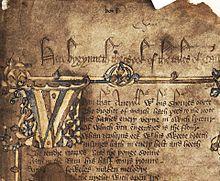 Here bygynneth the Book of the tales of
Whan that Aueryll wt his shoures soote
The droghte of March hath perced to the roote
And bathed euery veyne in swich lycour
Of which vertu engendred is the flour
Whan zephirus eek wt his sweete breeth
Inspired hath in euery holt and heeth
The tendre croppes and the yonge sonne
Hath in the Ram his half cours yronne
And smale foweles maken melodye
That slepen al the nyght with open Iye